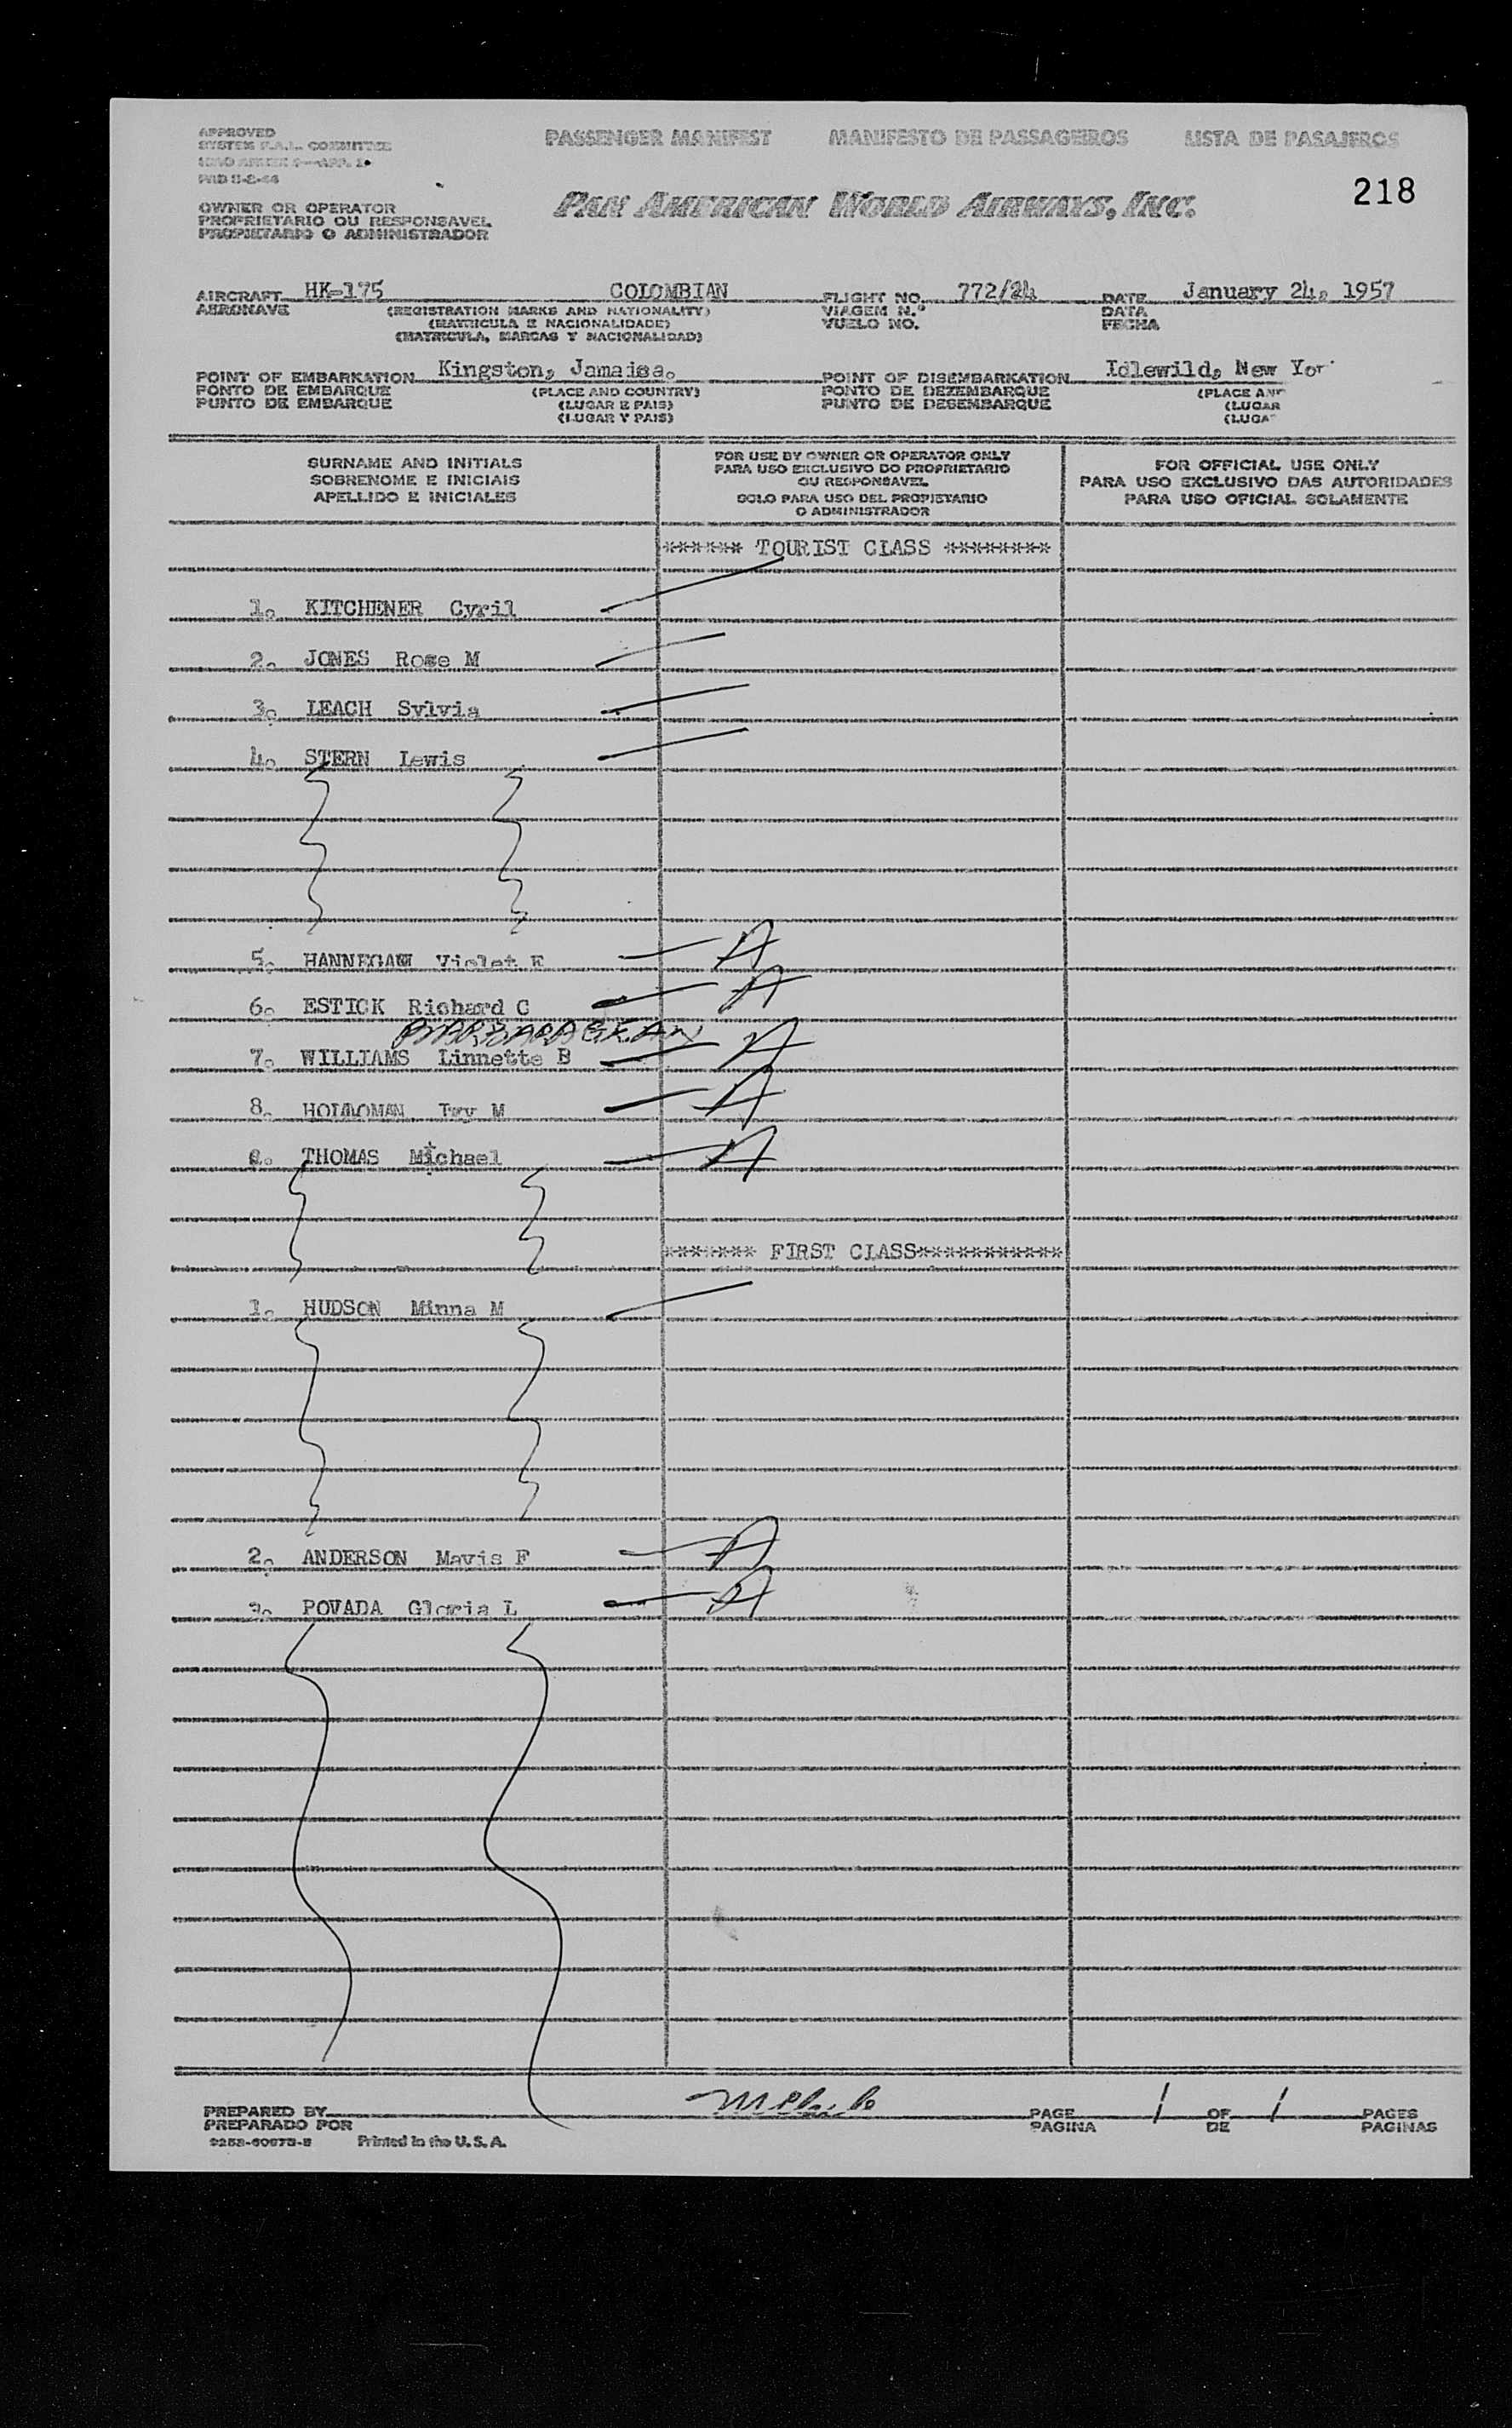 APPROVED
SYSTEM F.A.L. COMMITTEE
PASSENGER MANIFEST MANIFESTO DE PASSAGEIROS LISTA DE PASAJEROS
218
OWNER OR OPERATOR
PROPRIETARIO OU RESPONSAVEL
PROPIETARIO O ADMINISTRADOR
PAN AMERICAN WORLD AIRWAYS, INC.
AIRCRAFT HK-175 COLOMBIAN FLIGHT NO. 772/24 DATE January 24, 1957
AERONAVE (REGISTRATION MARKS AND NATIONALITY) VIAGEM N.º DATA
(MATRICULA E NACIONALIDADE) VUELO NO. FECHA
(MATRICULA, MARCAS Y NACIONALIDAD)
POINT OF EMBARKATION Kingston, Jamaica. POINT OF DISEMBARKATION Idlewild, New Yor
PONTO DE EMBARQUE (PLACE AND COUNTRY) PONTO DE DEZEMBARQUE (PLACE AN
PUNTO DE EMBARQUE (LUGAR E PAIS) PUNTO DE DESEMBARQUE (LUGAR
(LUGAR Y PAIS) (LUGA
SURNAME AND INITIALS
SOBRENOME E INICIAIS
APELLIDO E INICIALES
FOR USE BY OWNER OR OPERATOR ONLY
PARA USO EXCLUSIVO DO PROPRIETARIO
OU RESPONSAVEL
SOLO PARA USO DEL PROPIETARIO
O ADMINISTRADOR
FOR OFFICIAL USE ONLY
PARA USO EXCLUSIVO DAS AUTORIDADES
PARA USO OFICIAL SOLAMENTE
****** TOURIST CLASS ********
1. KITCHENER Cyril
2. JONES Rose M
3. LEACH Sylvia
4. STERN Lewis
5. Violet E A
6. ESTICK Richard C A
7. WILLIAMS Linnette B A
8. M A
THOMAS Michael A
******* FIRST CLASS***********
1. HUDSON Minna M
2. ANDERSON Mavis F A
POVADA Gloria L A
PREPARED BY PAGE 1 OF 1 PAGES
PREPARADO POR PAGINA DE PAGINAS
Printed in the U.S.A.